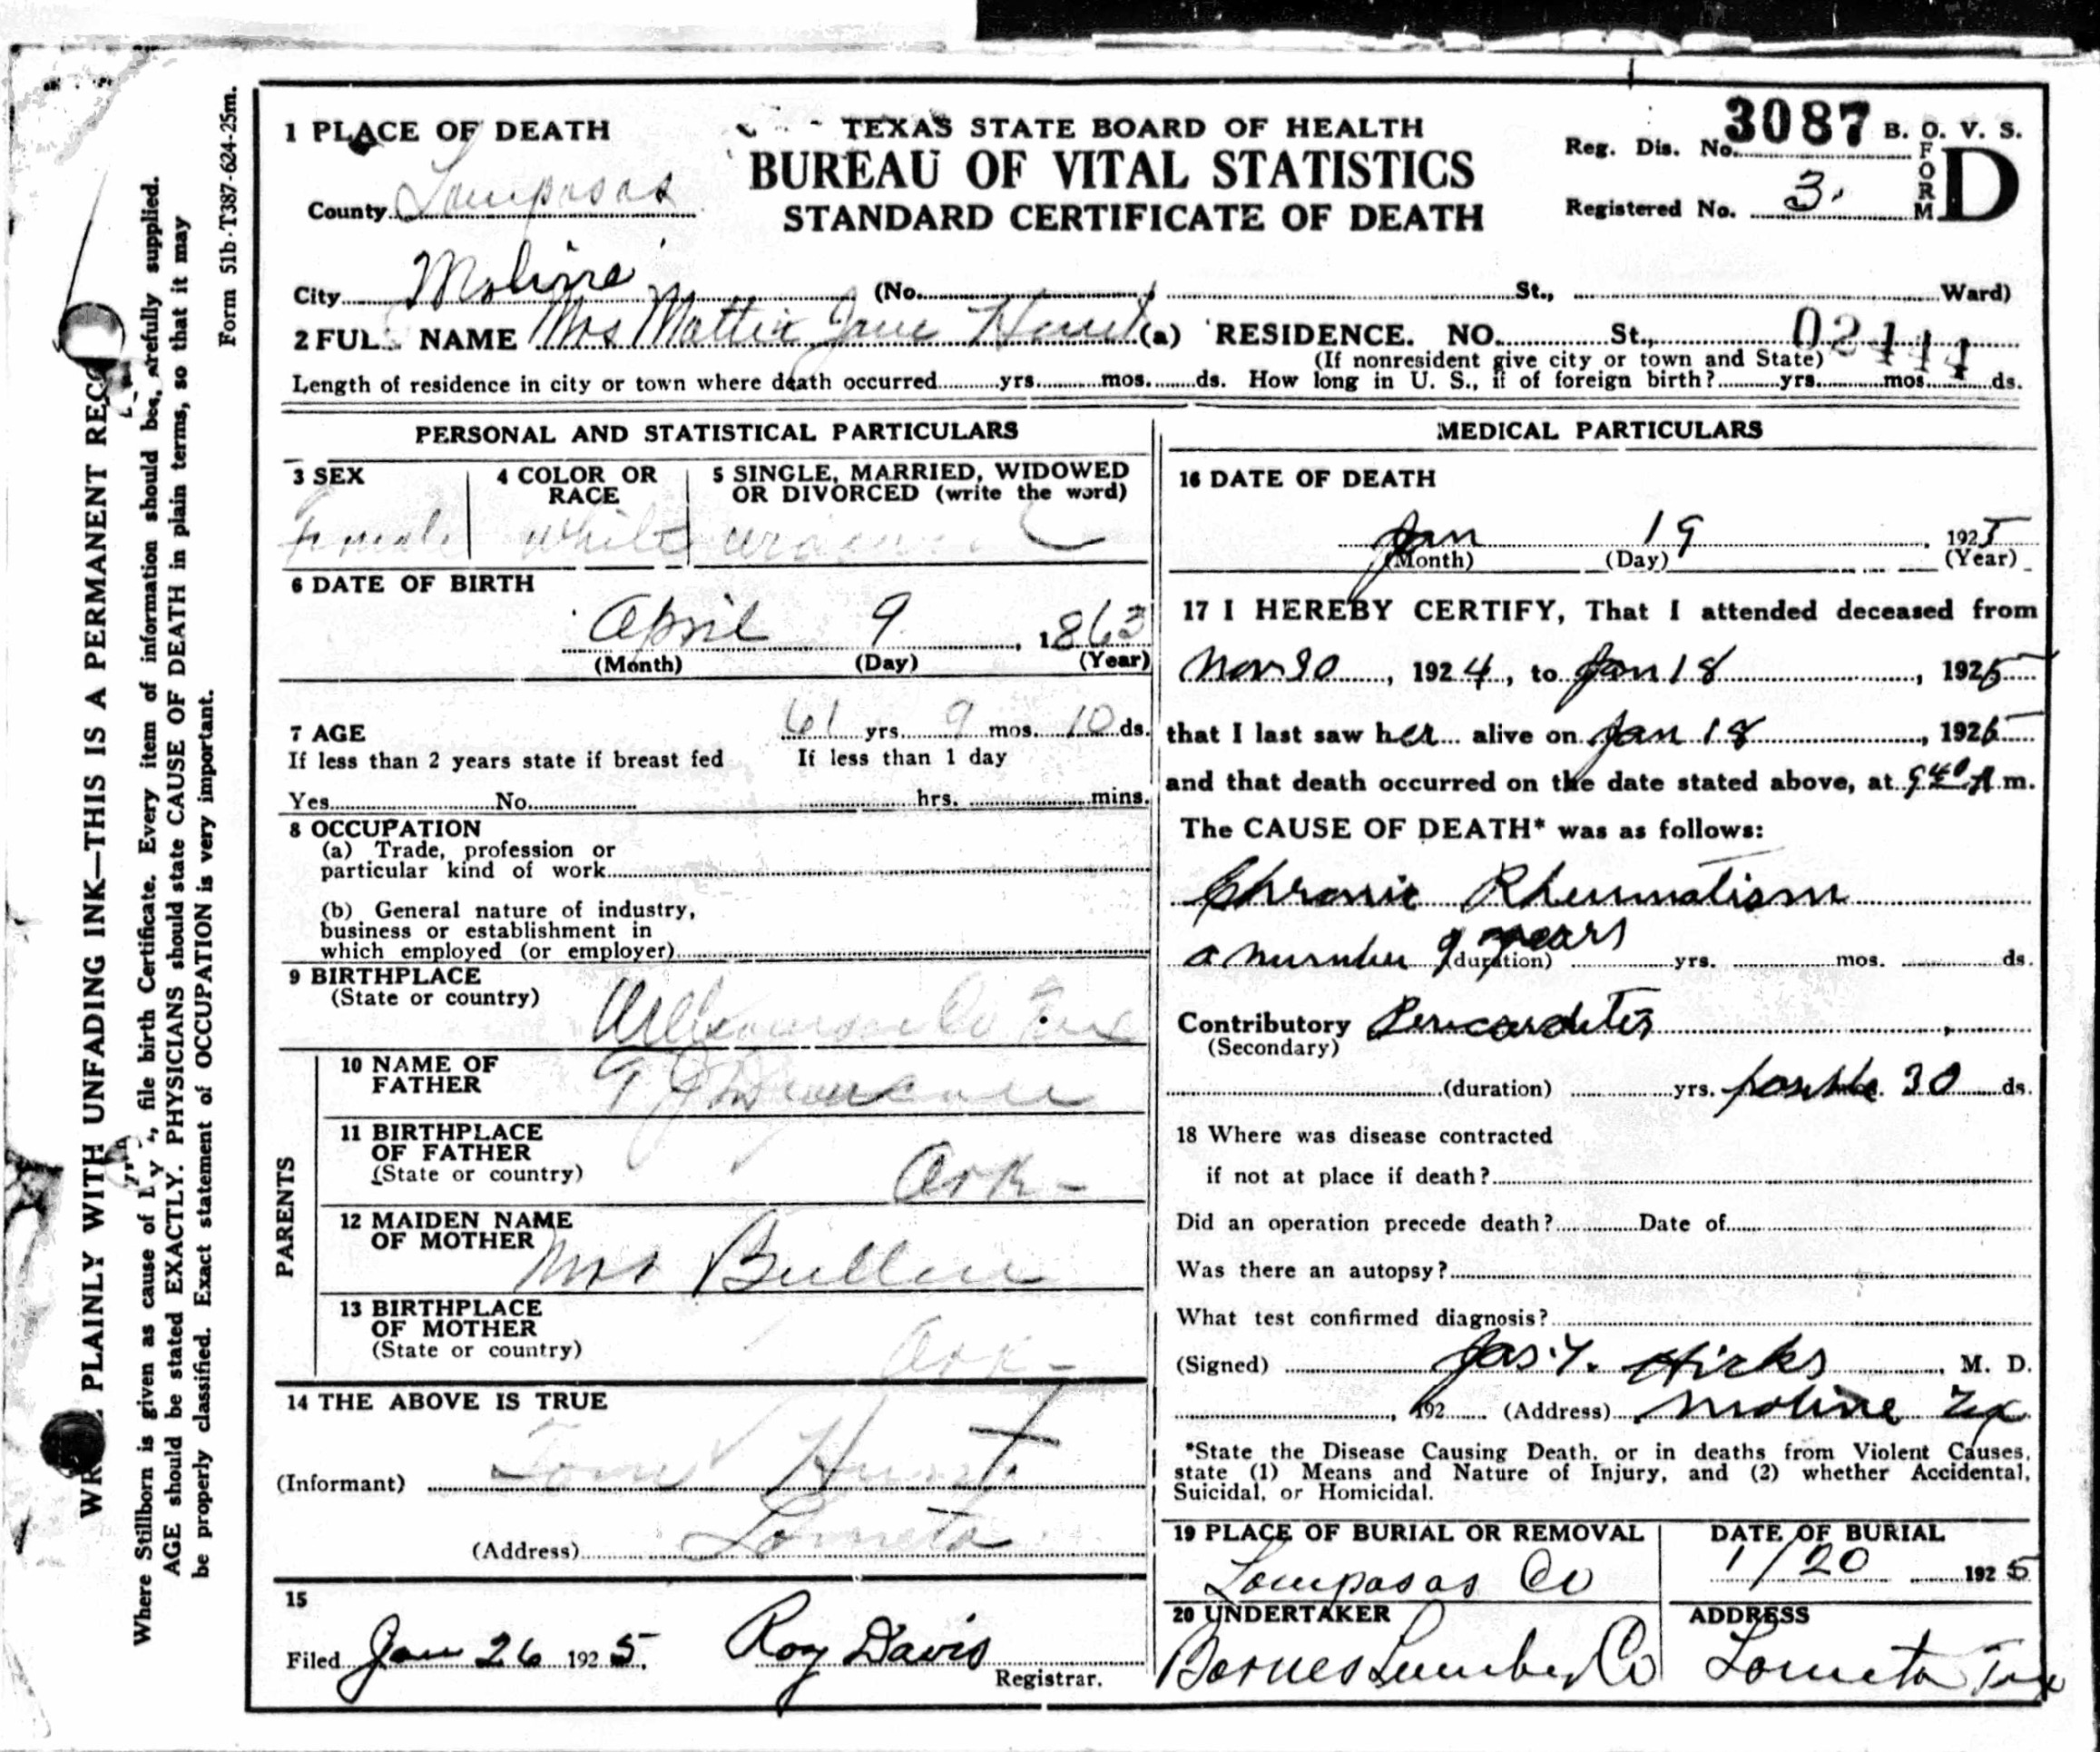 WRITE PLAINLY WITH UNFADING INK—THIS IS A PERMANENT REC
Where Stillborn is given as cause of file birth Certificate. Every item of information should be carefully supplied.
AGE should be stated EXACTLY. PHYSICIANS should state CAUSE OF DEATH in plain terms, so that it may
be properly classified. Exact statement of OCCUPATION is very important.
Form 51b-T387-624-25m.
1 PLACE OF DEATH
County Lampasas
TEXAS STATE BOARD OF HEALTH
BUREAU OF VITAL STATISTICS
STANDARD CERTIFICATE OF DEATH
Reg. Dis. No. 3087 B. O. V. S.
Registered No. 3. FORM D
City Moline (No. St., Ward)
2 FUL NAME Mrs Mattie Jane Hurst (a) RESIDENCE. NO. St., 02444
(If nonresident give city or town and State)
Length of residence in city or town where death occurred yrs. mos. ds. How long in U. S., if of foreign birth? yrs. mos. ds.
PERSONAL AND STATISTICAL PARTICULARS
3 SEX
Female
4 COLOR OR RACE
White
5 SINGLE, MARRIED, WIDOWED
OR DIVORCED (write the word)
6 DATE OF BIRTH
April 9, 1863
(Month) (Day) (Year)
7 AGE 61 yrs. 9 mos. 10 ds.
If less than 2 years state if breast fed If less than 1 day
Yes No hrs. mins.
8 OCCUPATION
(a) Trade, profession or
particular kind of work
(b) General nature of industry,
business or establishment in
which employed (or employer)
9 BIRTHPLACE
(State or country) Williamson Co Tex
10 NAME OF
FATHER
PARENTS
11 BIRTHPLACE
OF FATHER
(State or country) Ark-
12 MAIDEN NAME
OF MOTHER Mrs Bullen
13 BIRTHPLACE
OF MOTHER
(State or country) Ark-
14 THE ABOVE IS TRUE
(Informant) Tom Hurst
(Address) Lometa
15
Filed Jan 26 1925. Roy Davis
Registrar.
MEDICAL PARTICULARS
16 DATE OF DEATH
Jan 19, 1925
(Month) (Day) (Year)
17 I HEREBY CERTIFY, That I attended deceased from
Nov 20, 1924, to Jan 18, 1925
that I last saw her alive on Jan 18, 1925
and that death occurred on the date stated above, at 9 40 A. m.
The CAUSE OF DEATH* was as follows:
Chronic Rheumatism
a number of years (duration) yrs. mos. ds.
Contributory Pericarditis
(Secondary)
(duration) yrs. possible 30 ds.
18 Where was disease contracted
if not at place if death?
Did an operation precede death? Date of
Was there an autopsy?
What test confirmed diagnosis?
(Signed) Jas. Y. Hicks, M. D.
, 192 (Address) Moline Tex
*State the Disease Causing Death, or in deaths from Violent Causes,
state (1) Means and Nature of Injury, and (2) whether Accidental,
Suicidal, or Homicidal.
19 PLACE OF BURIAL OR REMOVAL
Lampasas Co
DATE OF BURIAL
1/20 1925
20 UNDERTAKER
Barnes Lumber Co
ADDRESS
Lometa Tex